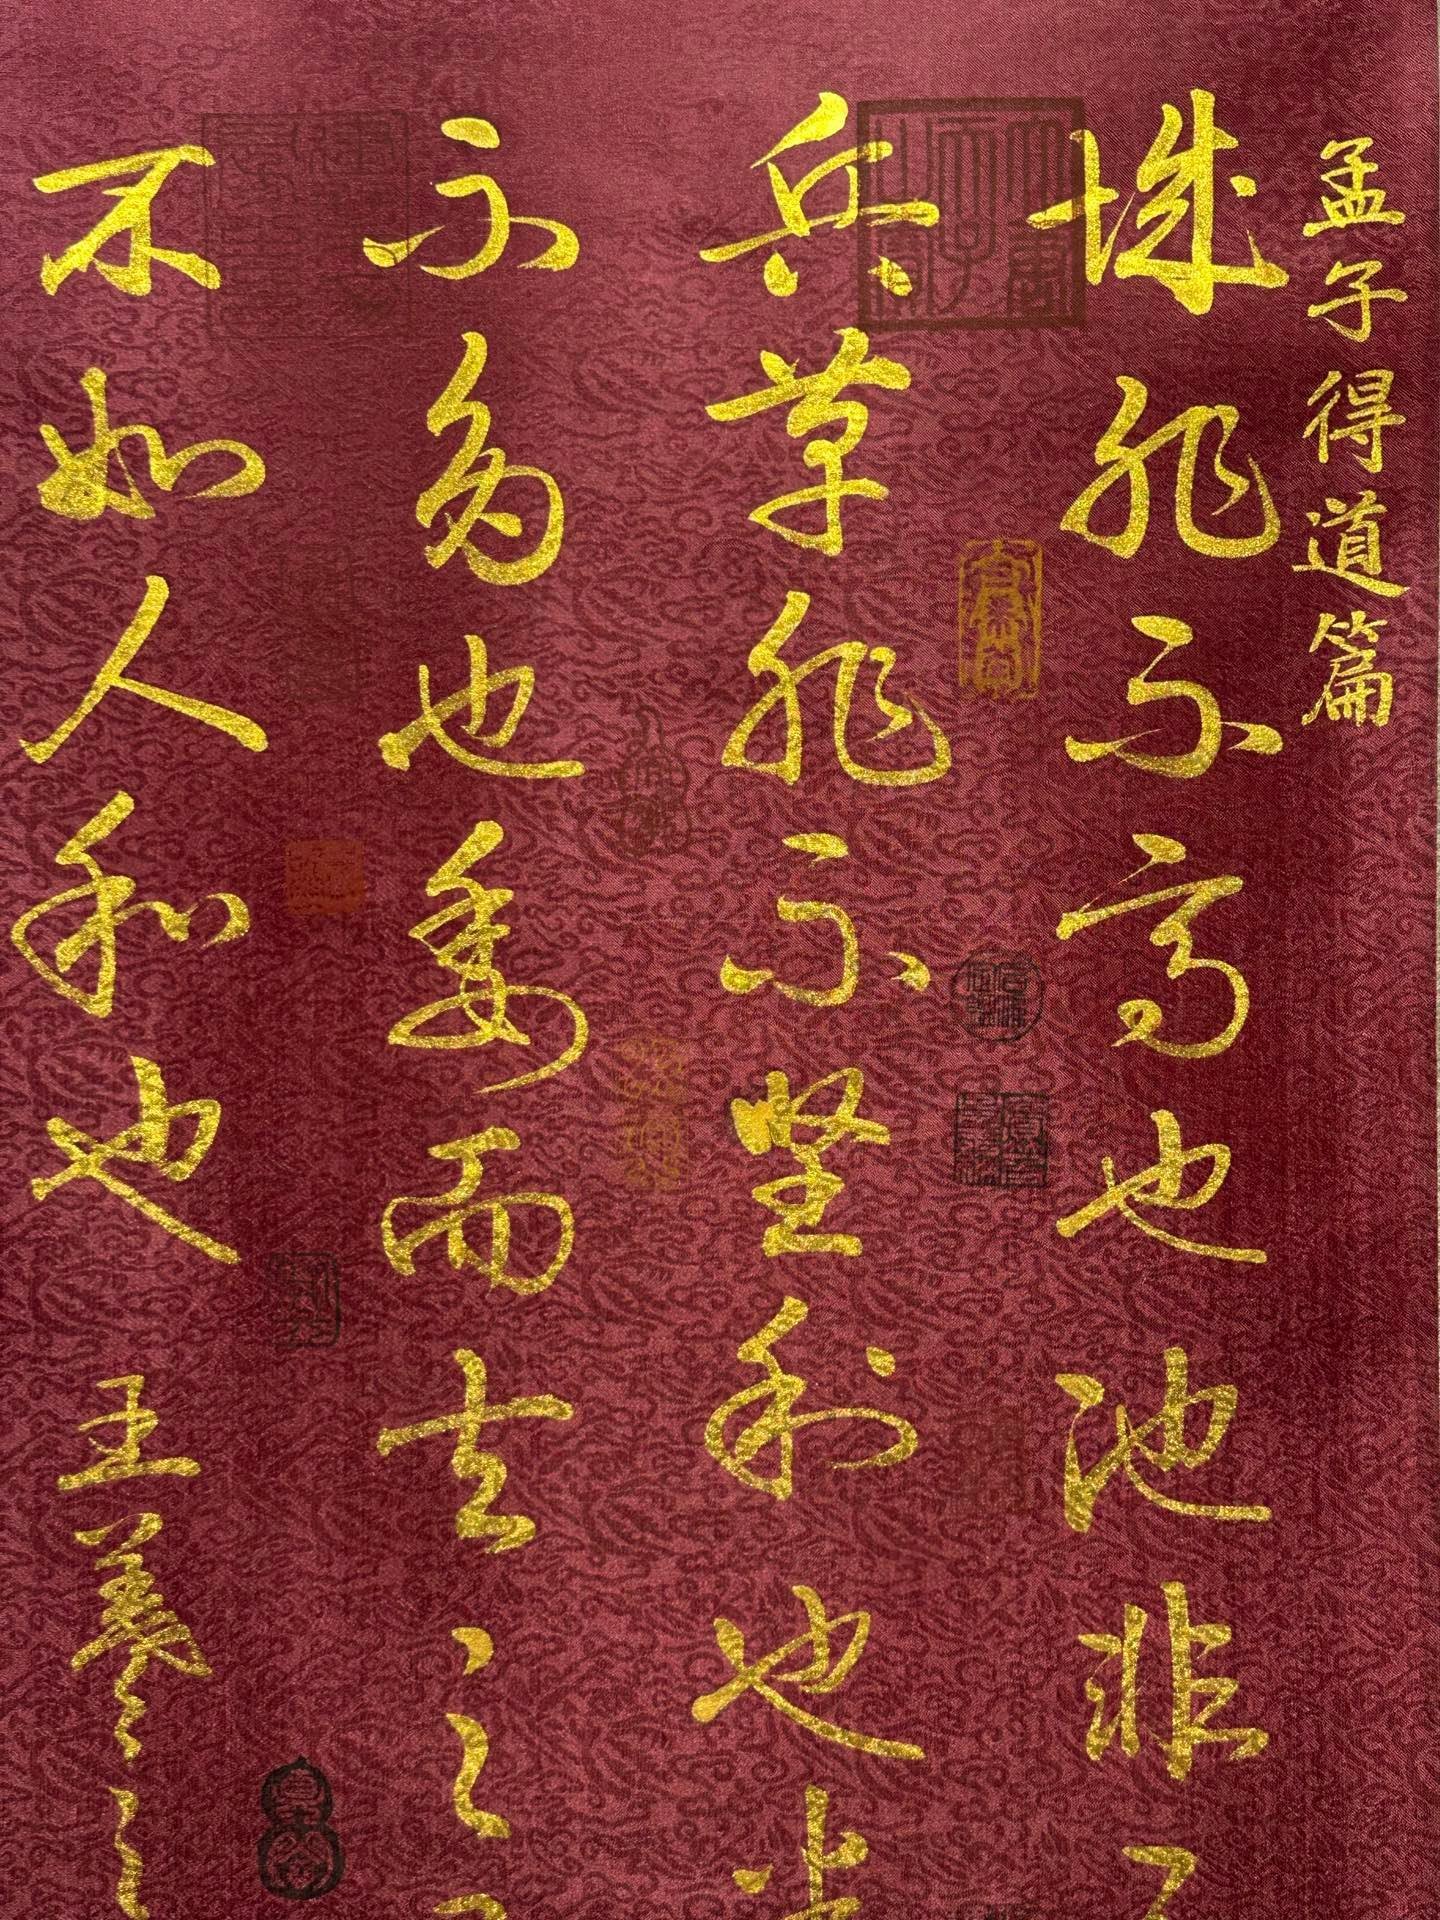 孟子得道篇
城非不高也池非
兵革非不坚利也
不多也委而去之
不如人和也 王羲之